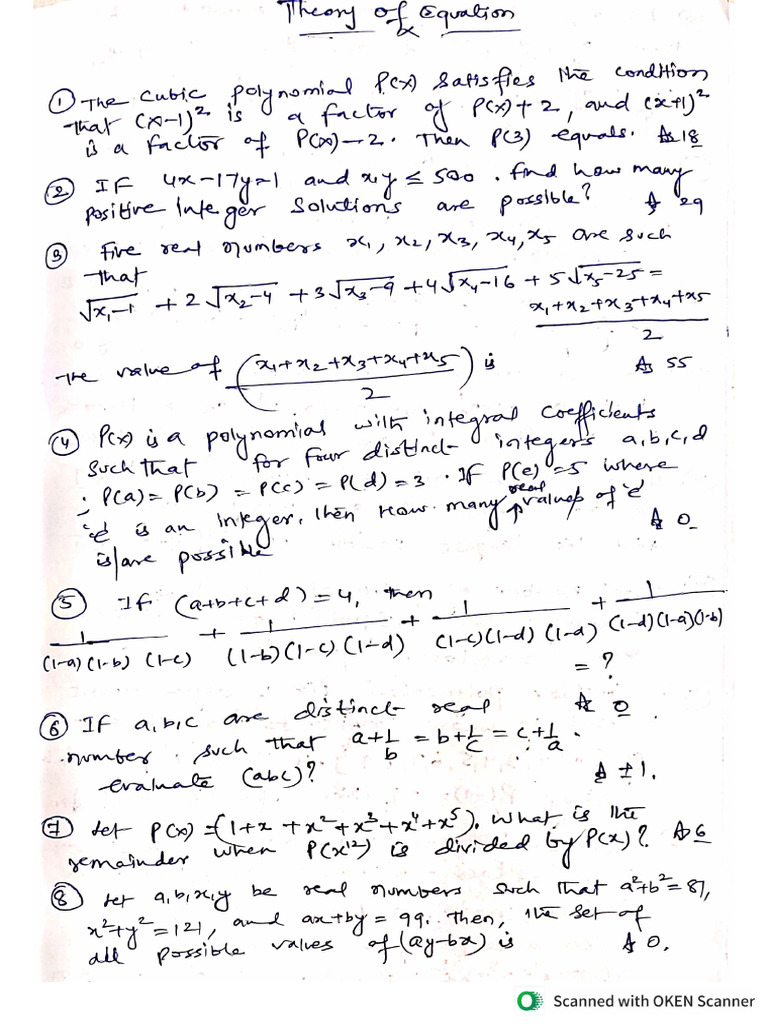 Theory of Equation
① The cubic polynomial P(x) satisfies the condition
that (x-1)² is a factor of P(x)+2, and (x+1)²
is a factor of P(x)-2. Then P(3) equals. A 18
② If 4x-17y=1 and x,y ≤ 500. find how many
positive integer solutions are possible? A 29
③ Five real numbers x₁, x₂, x₃, x₄, x₅ are such
that
√x₁-1 + 2√x₂-4 + 3√x₃-9 + 4√x₄-16 + 5√x₅-25 =
x₁+x₂+x₃+x₄+x₅
2
The value of (x₁+x₂+x₃+x₄+x₅) is
2
A 55
④ P(x) is a polynomial with integral coefficients
such that for four distinct integers a,b,c,d
; P(a) = P(b) = P(c) = P(d) = 3. If P(e) = 5 where
'e' is an integer, then how many real values of 'e'
is/are possible A 0
⑤ If (a+b+c+d) = 4, then
1/(1-a)(1-b)(1-c) + 1/(1-b)(1-c)(1-d) + 1/(1-c)(1-d)(1-a) + 1/(1-d)(1-a)(1-b)
= ?
A 0
⑥ If a,b,c are distinct real
number such that a+1/b = b+1/c = c+1/a.
evaluate (abc)? A ±1.
⑦ Let P(x) = (1+x+x²+x³+x⁴+x⁵). What is the
remainder when P(x¹²) is divided by P(x)? A 6
⑧ Let a,b,x,y be real numbers such that a²+b²=81,
x²+y²=121, and ax+by = 99. Then, the set of
all possible values of (ay-bx) is A 0.
Scanned with OKEN Scanner